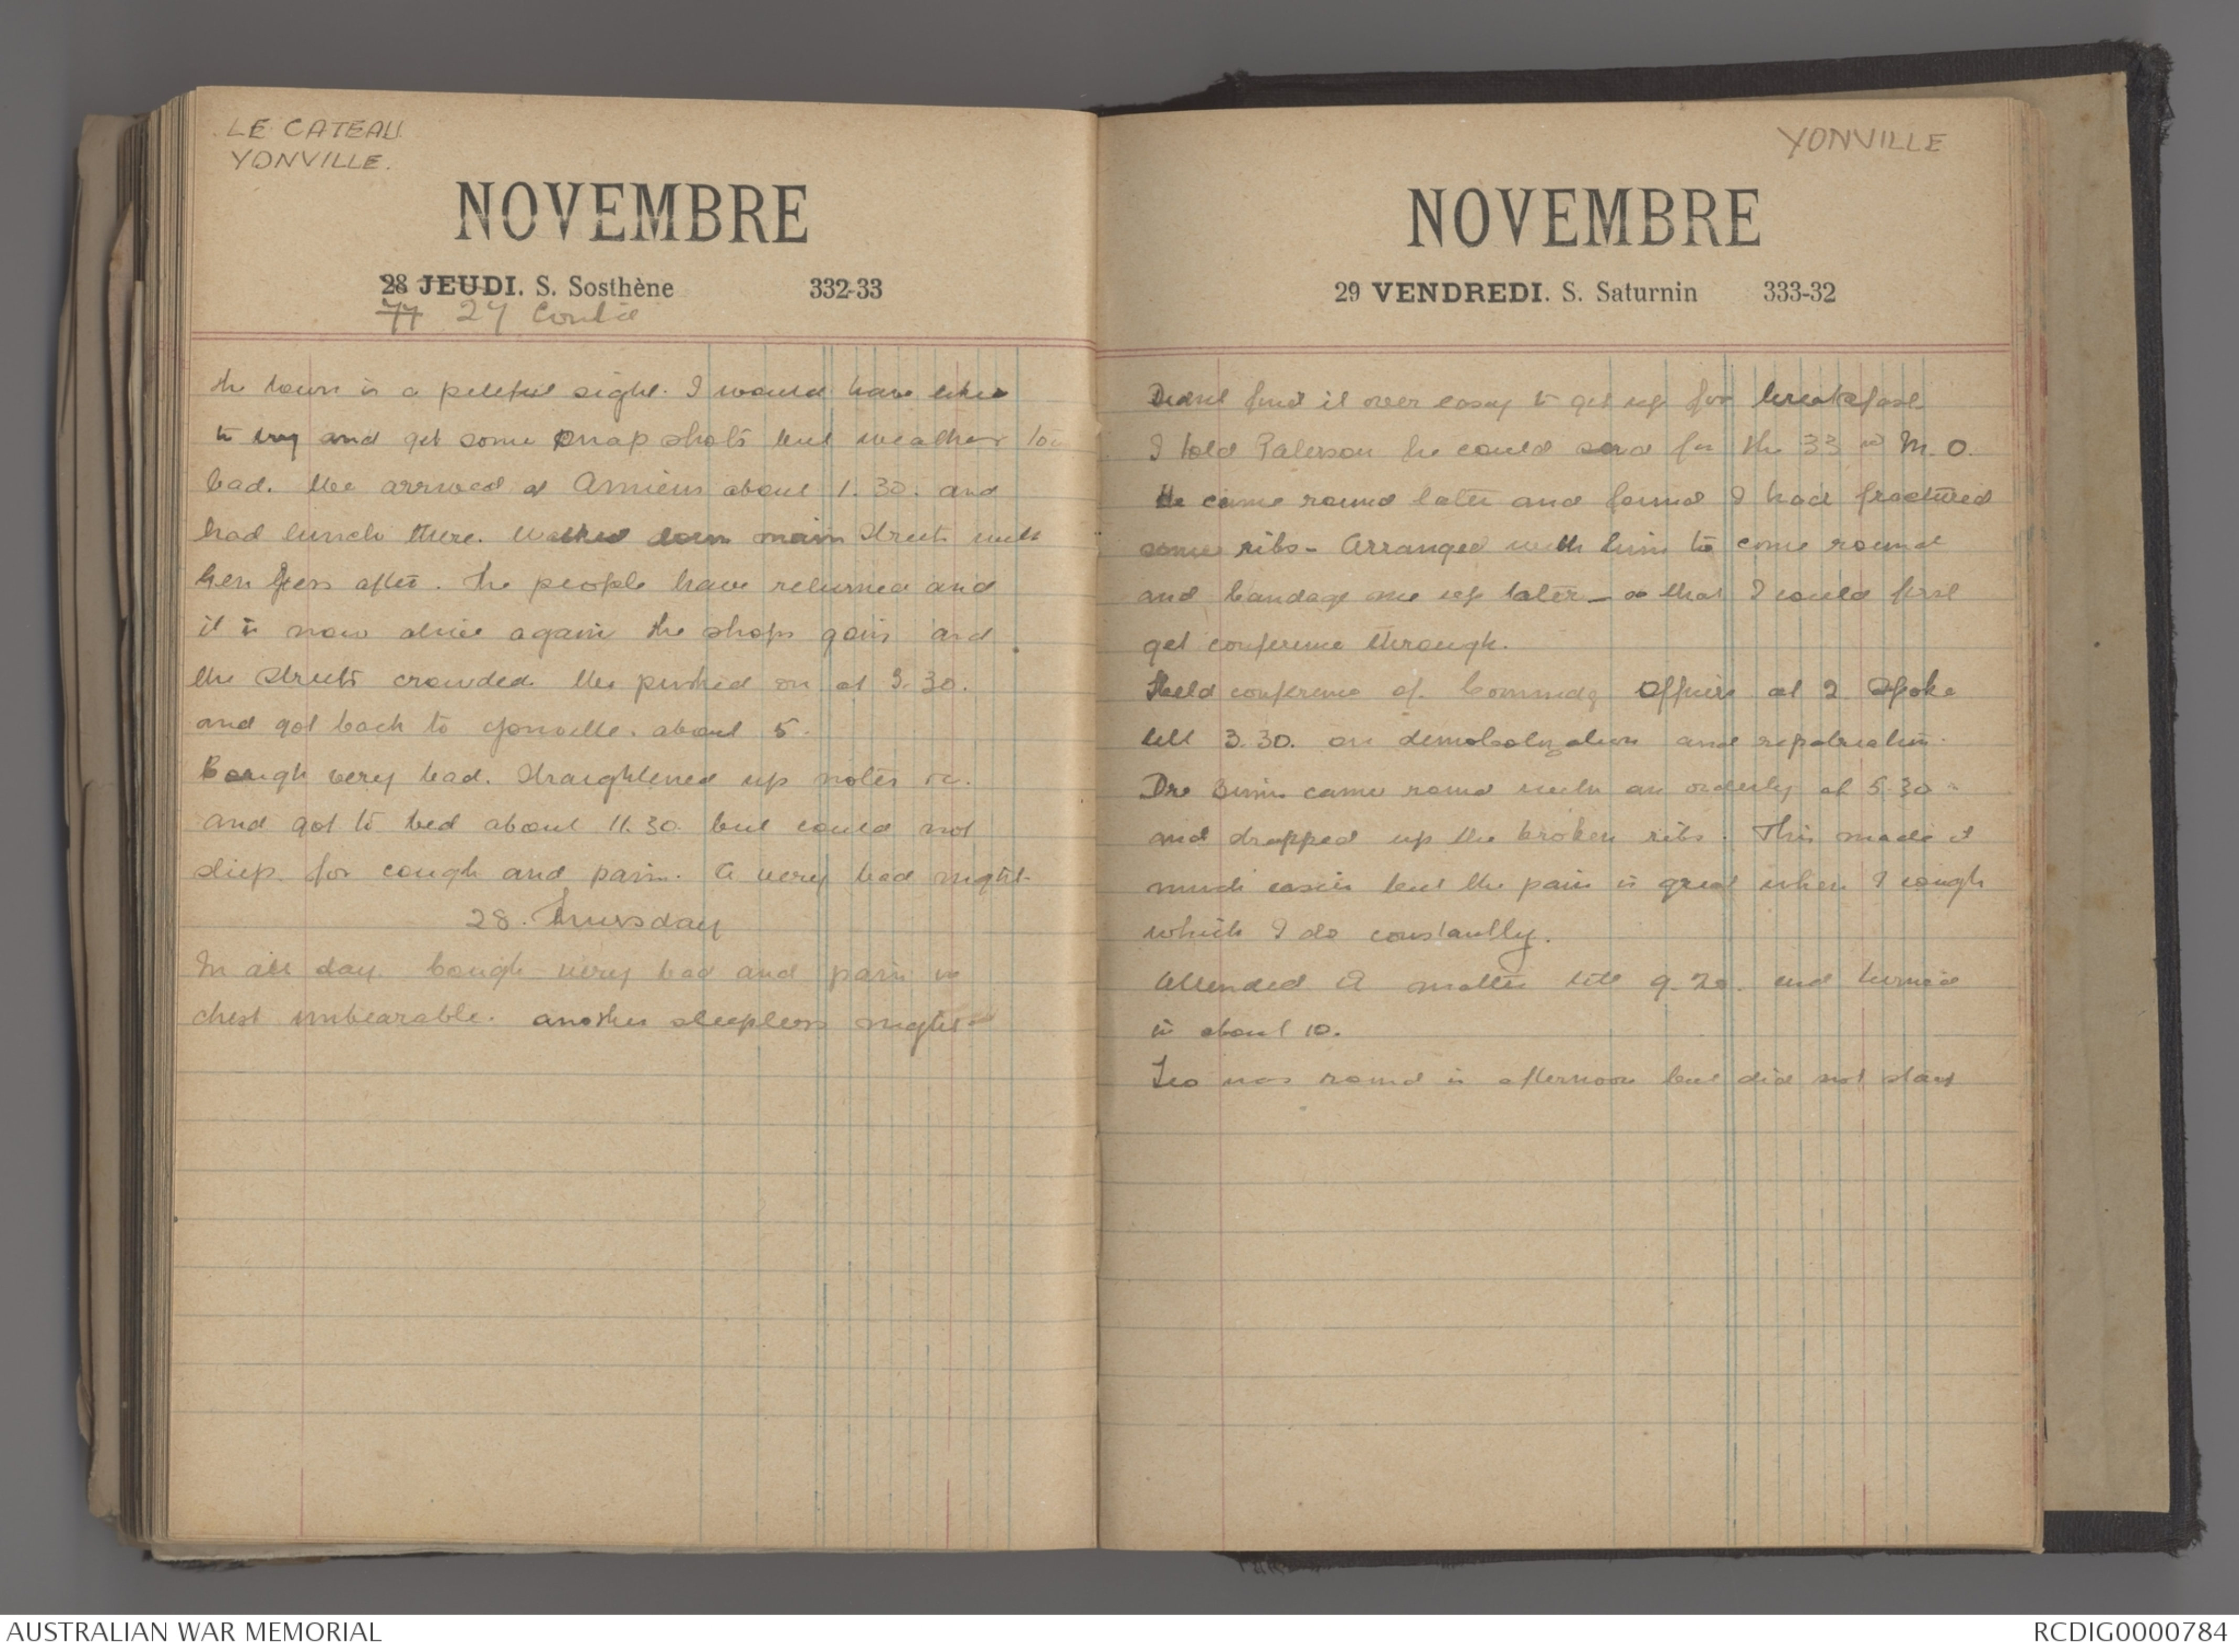 LE CATEAU
YONVILLE.
NOVEMBRE
28 JEUDI. S. Sosthène 332-33
27 Contd
the town is a pitiful sight. I would have liked
to try and get some snap shots but weather too
bad. We arrived at Amiens about 1.30. and
had lunch there. Walked down main streets with
after. The people have returned and
it is now alive again the shops going and
the streets crowded. We pushed on at 3.30.
and got back to Yonville. about 5.
Cough very bad. Straightened up notes &c.
and got to bed about 11.30. but could not
sleep for cough and pain. A very bad night.
28. Thursday
In all day. Cough very bad and pain in
chest unbearable. another sleepless night
YONVILLE
NOVEMBRE
29 VENDREDI. S. Saturnin 333-32
Didnt find it over easy to get up for breakfast
I told Paterson he could send for the 33rd M.O.
He came round later and found I had fractured
some ribs - Arranged with him to come round
and bandage me up later - so that I could first
get conference through.
Held conference of Commdg Officers at 2 Spoke
till 3.30. on demobolization and repatriation.
Dr came round with an orderly at 5.30
and strapped up the broken ribs. This made it
much easier but the pain is great when I cough
which I do constantly.
Attended Q matters till 9.20. and turned
in about 10.
Leo was round in afternoon but did not stay
AUSTRALIAN WAR MEMORIAL
RCDIG0000784